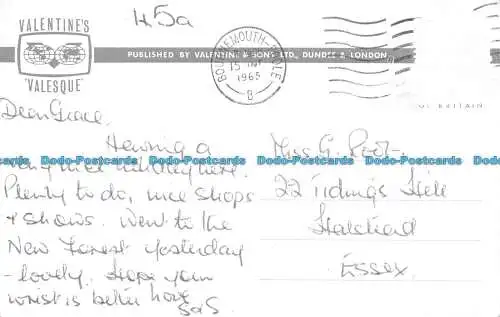 45a
VALENTINE'S
"VALESQUE"
PUBLISHED BY VALENTINE & SONS LTD., DUNDEE & LONDON
BOURNEMOUTH-POOLE
15
1965
8
BRITAIN
Dear Grace,
Having a
very nice holiday here.
Plenty to do, nice shops
& shows. Went to the
New Forest yesterday
- lovely. Hope your
wrist is better now
Miss G. Root.
22 Tidings Hill
Halstead
Essex.
Dado-Postcards Dado-Postcards Dado-Postcards Dado-Postcards Dado-Postcards